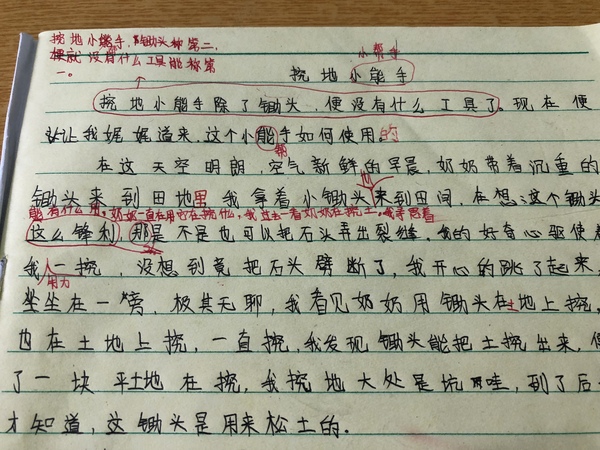 挖地小能手,锄头称第二,
便就没有什么工具能称第
一。
小帮手
挖地小能手
挖地小能手除了锄头,便没有什么工具了。现在便
让我娓娓道来,这个小能手如何使用的
帮
在这天空明朗,空气新鲜的早晨,奶奶带着沉重的
锄头来到田地里我拿着小锄头来到田间,在想:这个锄头
也
能有什么用,奶奶一直在用它在挖什么,我过去一看奶奶在挖土。
这么锋利 那是不是也可以把石头弄出裂缝,我的好奇心驱使着
我一挖,没想到竟把石头劈断了,我开心的跳了起来,
因为
坐在一旁,极其无聊,我看见奶奶用锄头在土地上挖,
也在土地上挖,一直挖,我发现锄头能把土挖出来,便
了一块平土地在挖,我挖地大处是坑哇,到了后
才知道,这锄头是用来松土的.